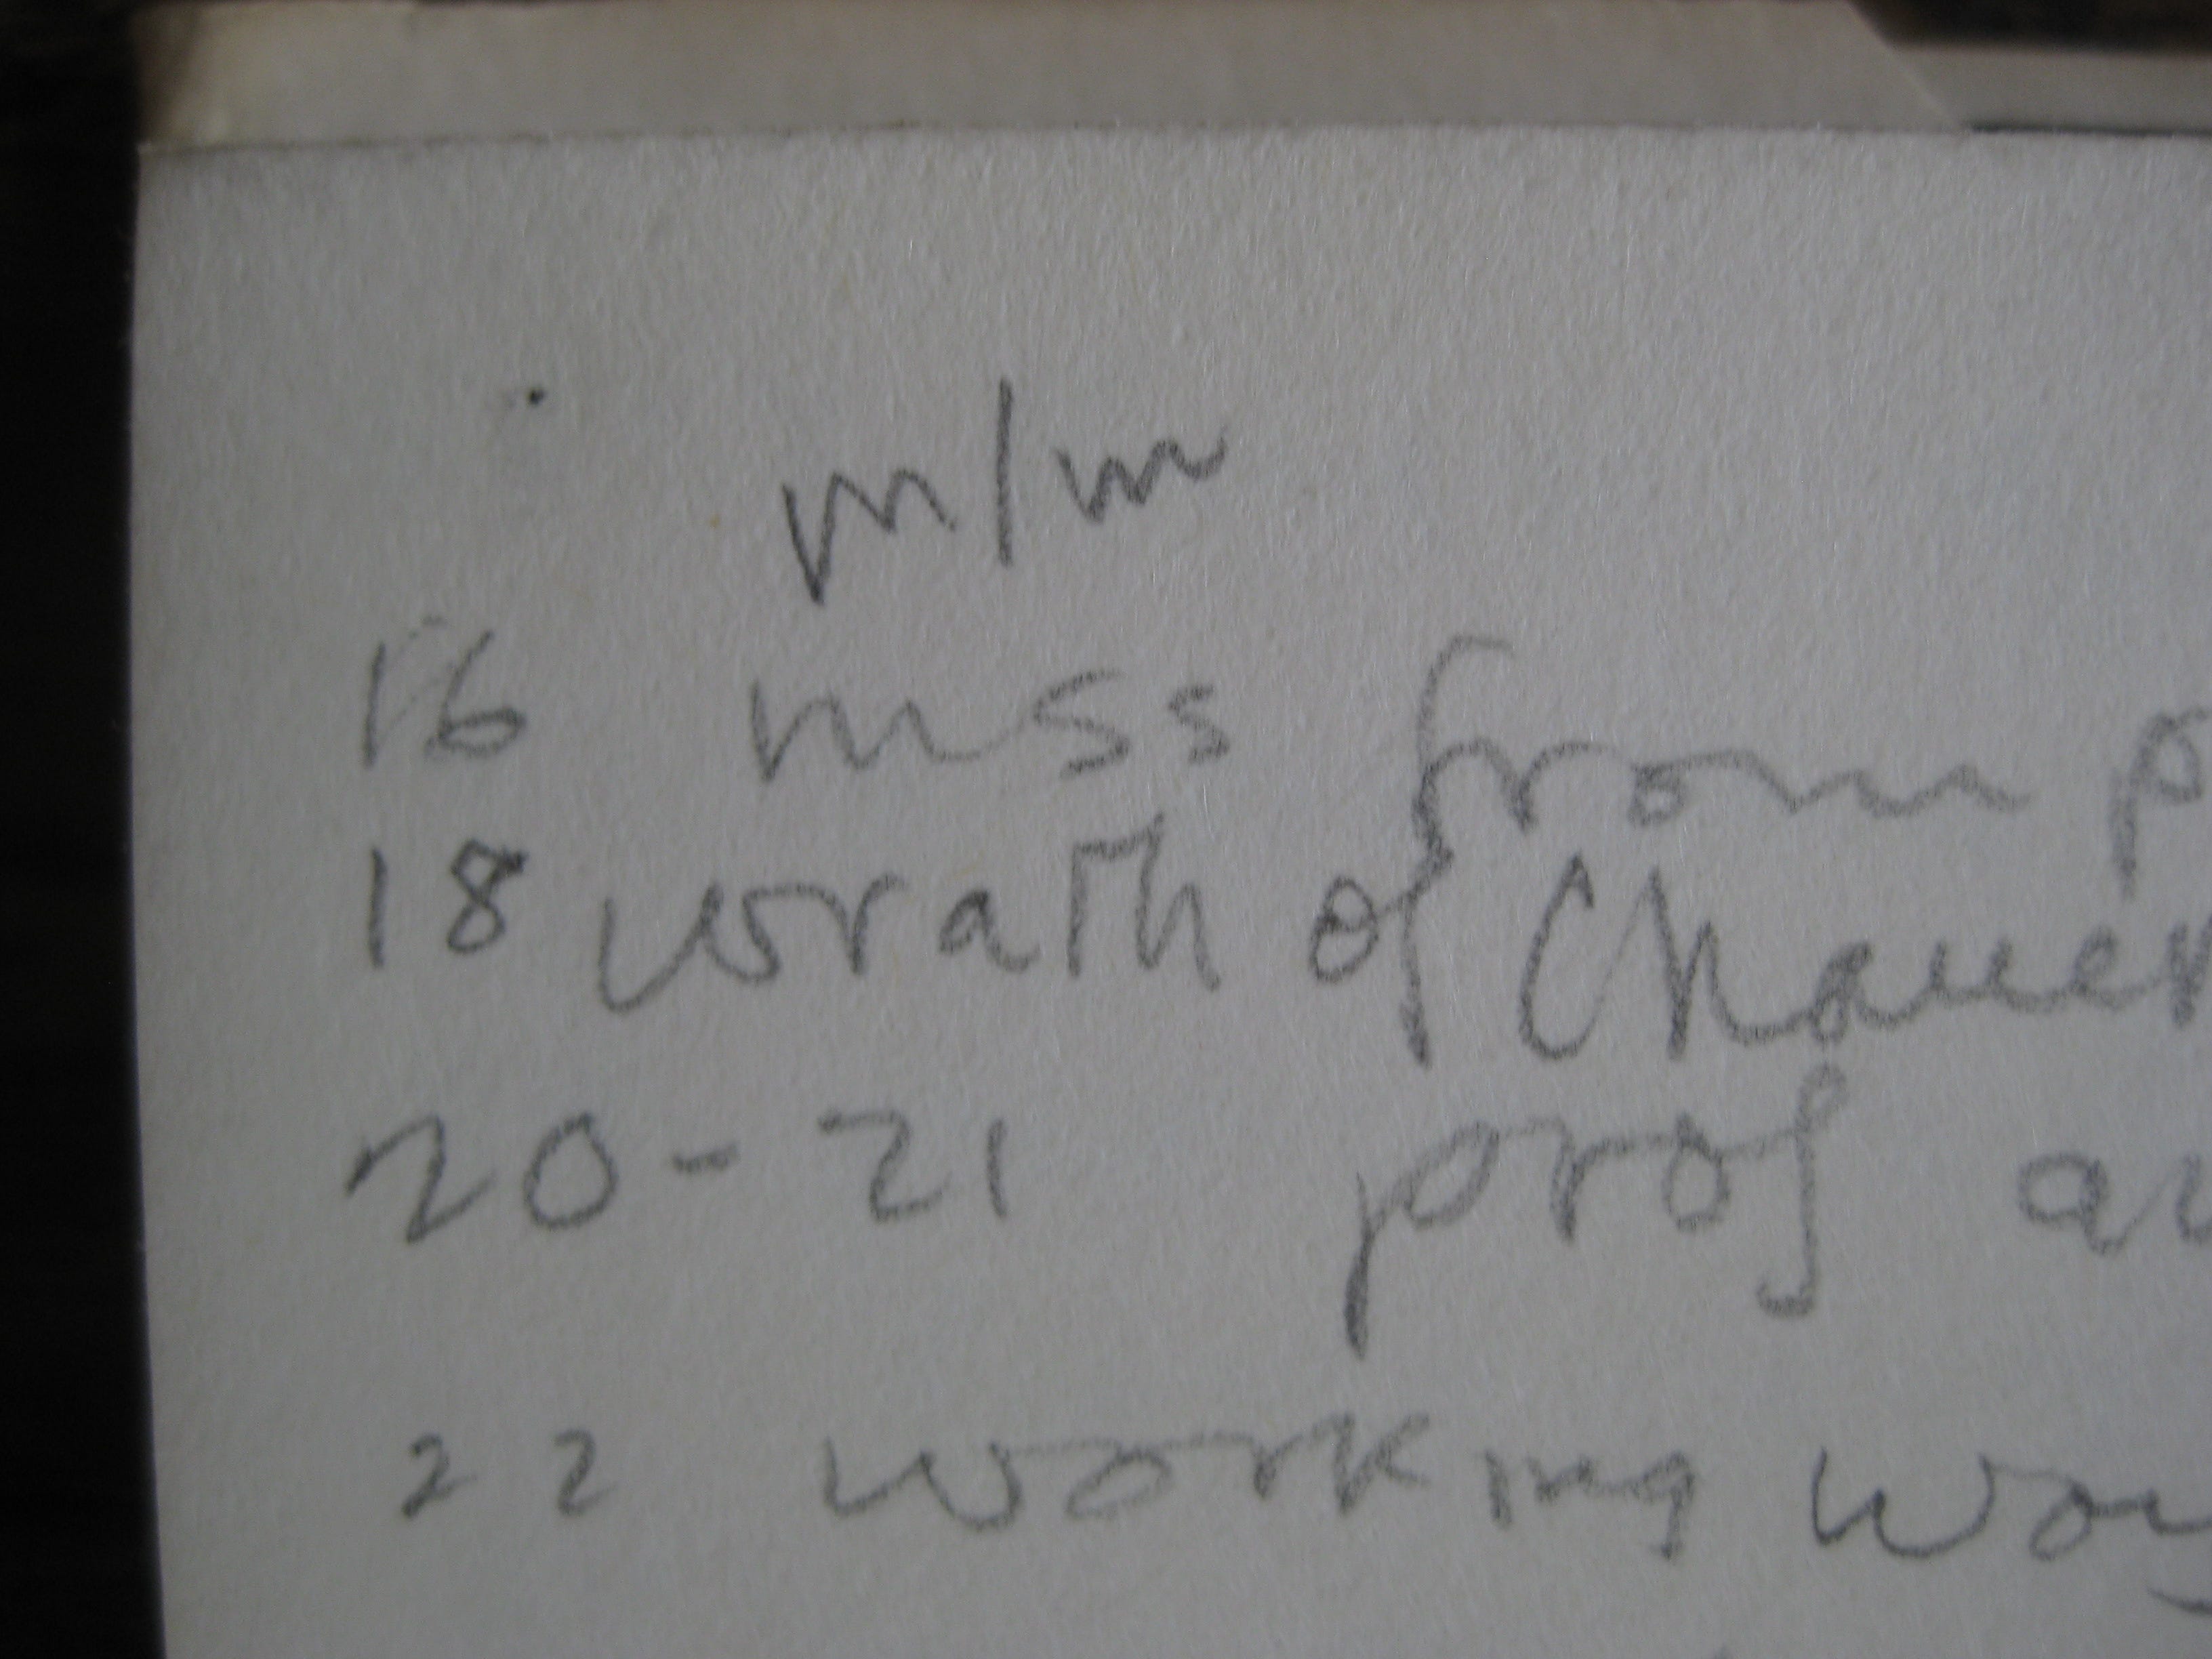 m/m
16 mss from p
18 wrath of Chauer
20-21 prof
22 working